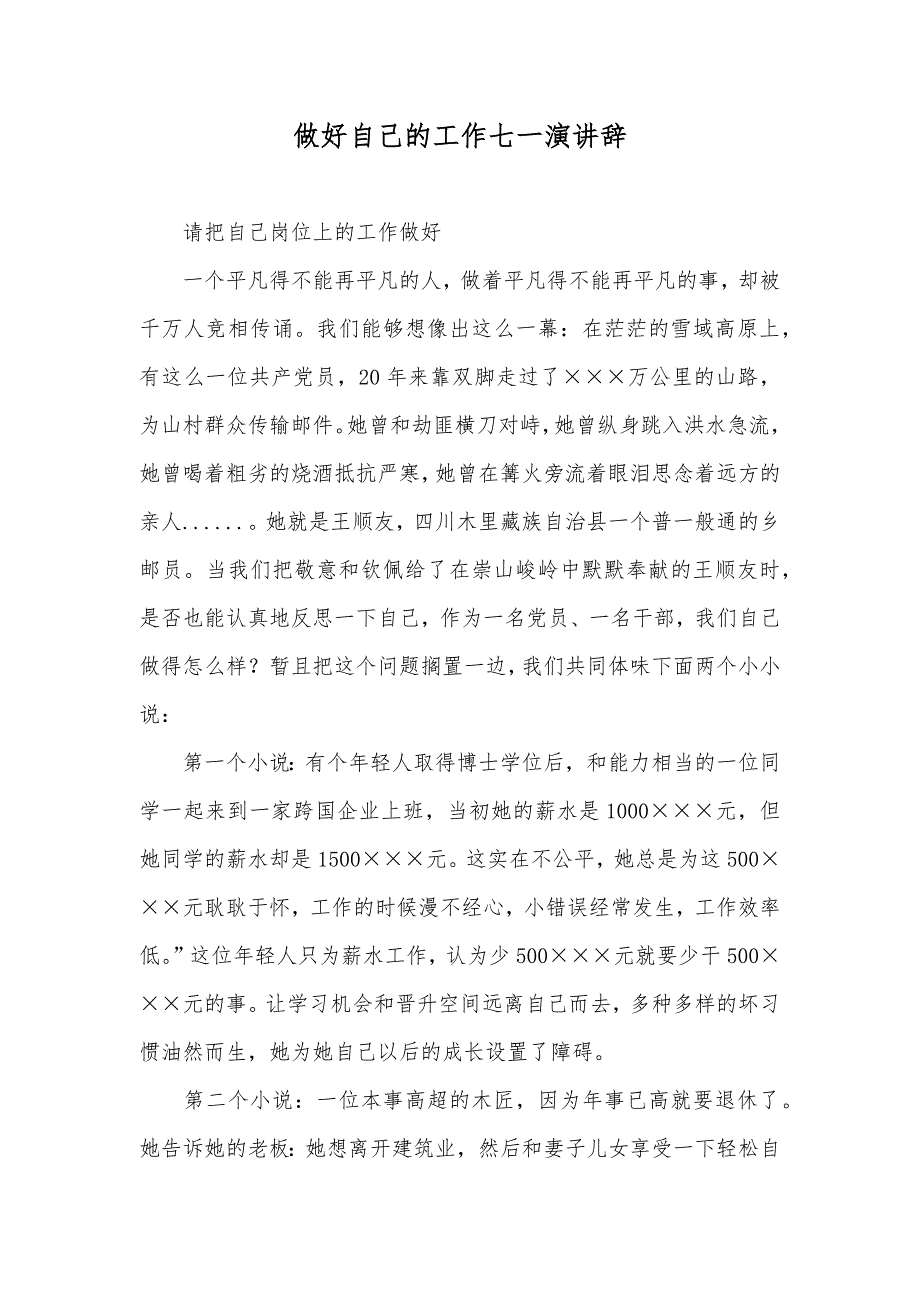 做好自己的工作七一演讲辞
请把自己岗位上的工作做好
一个平凡得不能再平凡的人，做着平凡得不能再平凡的事，却被
千万人竞相传诵。我们能够想像出这么一幕：在茫茫的雪域高原上，
有这么一位共产党员，20 年来靠双脚走过了×××万公里的山路，
为山村群众传输邮件。她曾和劫匪横刀对峙，她曾纵身跳入洪水急流，
她曾喝着粗劣的烧酒抵抗严寒，她曾在篝火旁流着眼泪思念着远方的
亲人......。她就是王顺友，四川木里藏族自治县一个普一般通的乡
邮员。当我们把敬意和钦佩给了在崇山峻岭中默默奉献的王顺友时，
是否也能认真地反思一下自己，作为一名党员、一名干部，我们自己
做得怎么样？暂且把这个问题搁置一边，我们共同体味下面两个小小
说：
第一个小说：有个年轻人取得博士学位后，和能力相当的一位同
学一起来到一家跨国企业上班，当初她的薪水是 1000×××元，但
她同学的薪水却是 1500×××元。这实在不公平，她总是为这 500×
××元耿耿于怀，工作的时候漫不经心，小错误经常发生，工作效率
低。”这位年轻人只为薪水工作，认为少 500×××元就要少干 500×
××元的事。让学习机会和晋升空间远离自己而去，多种多样的坏习
惯油然而生，她为她自己以后的成长设置了障碍。
第二个小说：一位本事高超的木匠，因为年事已高就要退休了。
她告诉她的老板：她想离开建筑业，然后和妻子儿女享受一下轻松自